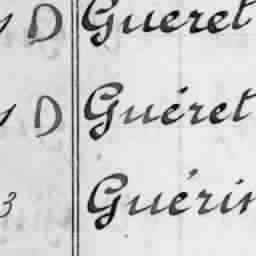 D Guéret
D Guéret
3 Guérin